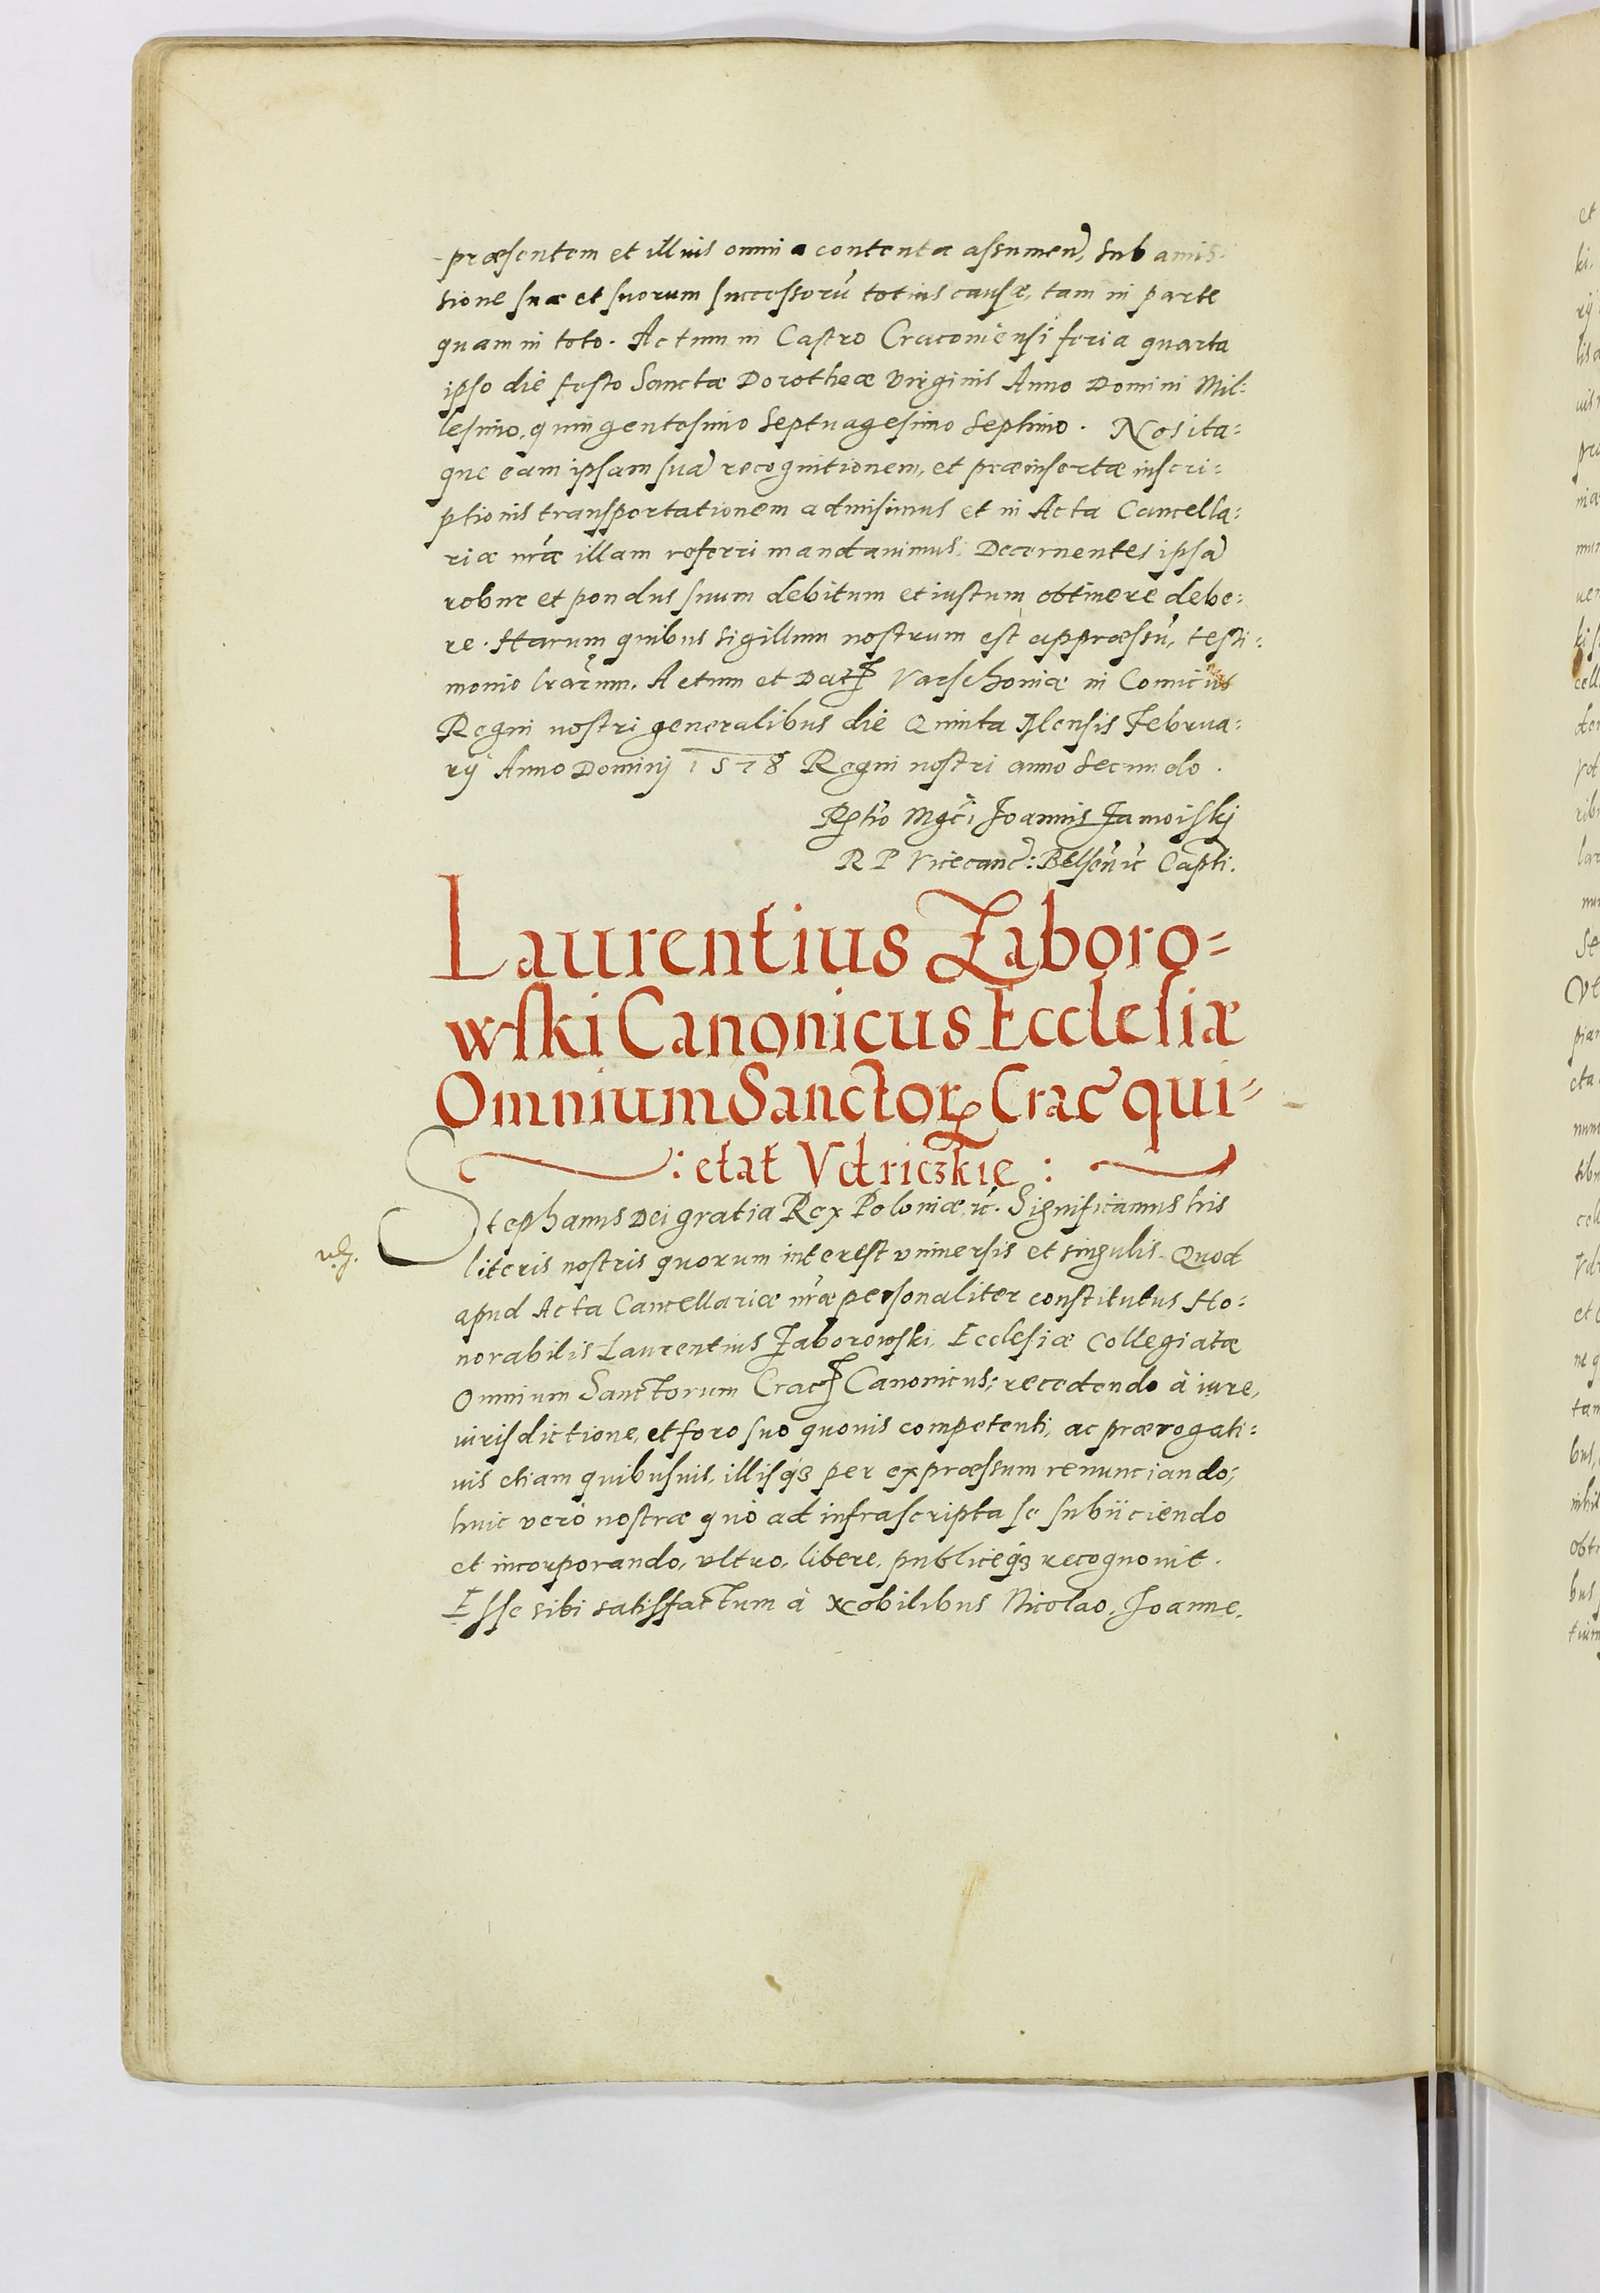 præsentem et illius omnia contenta assumen̄, sub amis-
sione sua et suorum successorū totius causæ, tam in parte
quam in toto. Actum in Castro Cracoviensi feria quarta
ipso die festo Sanctæ Dorotheæ Virginis Anno Domini Mil-
lesimo, quingentesimo Septuagesimo Septimo. Nos ita=
que eam ipsam suā recognitionem, et præinsertæ inscri=
ptionis transportationem admisimus et in Acta Cancella=
riæ nr̄æ illam referri mandavimus, Decernentes ipsā
robur et pondus suum debitum et iustum obtinere debe=
re. Harum quibus sigillum nostrum est appræssū, testi=
monio lrarum. Actum et Dat Varschoviæ in Comitiis
Regni nostri generalibus die Quinta Mensis Februa=
rij Anno Dominj 1578 Regni nostri anno Secundo.
Rtio Mgci Joannis Zamoiskj
R P Vicecanc̄: Belsen̄ ꝛc̄ Capti.
Laurentius Zaboro=
wski Canonicus Ecclesiæ
Omnium Sanctorꝝ Crac̄ qui=
: etat Vdriczkie :
Stephanus Dei gratia Rex Poloniæ ꝛc̄. Significamus his
literis nostris quorum interest vniversis et singulis. Quod
apud Acta Cancellariæ nr̄æ personaliter constitutus Ho=
norabilis Laurentius Zaborowski, Ecclesiæ Collegiatæ
Omnium Sanctorum Crac Canonicus; recedendo à iure,
iurisdictione, et foro suo quovis competenti, ac prærogati=
vis etiam quibusvis, illisqꝫ per expræssum renunciando;
huic verò nostræ quò ad infrascripta se subiiciendo
et incorporando, vltro, libere, publiceqꝫ recognovit.
Esse sibi satisfactum à Nobilibus Nicolao, Joanne,